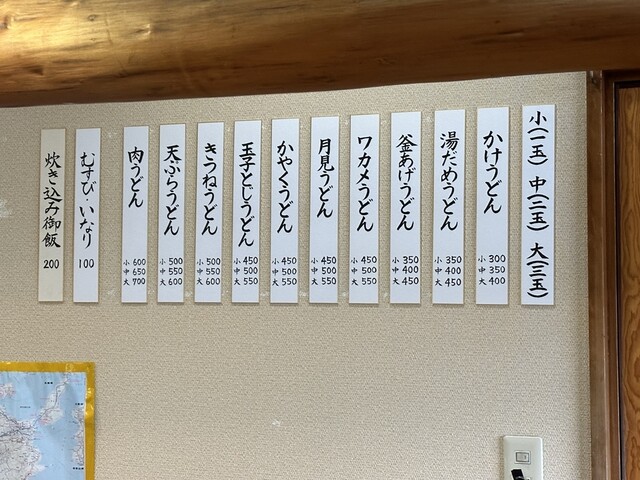 小(一玉) 中(二玉) 大(三玉)
かけうどん
小 300
中 350
大 400
湯だめうどん
小 350
中 400
大 450
釜あげうどん
小 350
中 400
大 450
ワカメうどん
小 450
中 500
大 550
月見うどん
小 450
中 500
大 550
かやくうどん
小 450
中 500
大 550
玉子とじうどん
小 450
中 500
大 550
きつねうどん
小 500
中 550
大 600
天ぷらうどん
小 500
中 550
大 600
肉うどん
小 600
中 650
大 700
むすび・いなり
100
炊き込み御飯
200